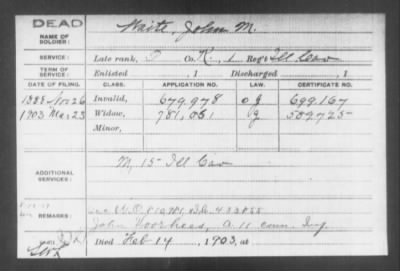 DEAD
NAME OF SOLDIER: Waite, John M.
SERVICE: Late rank, P Co. K, 1 Reg't Ill Cav
TERM OF SERVICE: Enlisted , 1 Discharged , 1
DATE OF FILING. CLASS. APPLICATION NO. LAW. CERTIFICATE NO.
1888 Nov 26 Invalid, 679.978 699.167
1903 Mar 23 Widow, 781,051 509.725
Minor,
ADDITIONAL SERVICES: M, 15 Ill Cav
REMARKS:
John Voorhees, a. 11 Conn. Inf.
Died Feb 14, 1903, at